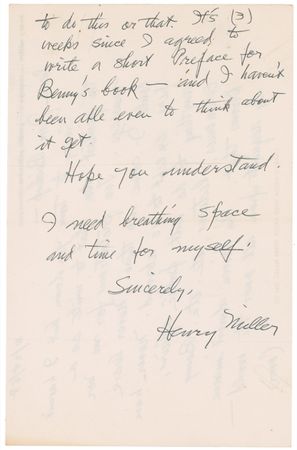 to do this or that. It's (3)
weeks since I agreed to
write a short Preface for
Benny's book — and I haven't
been able even to think about
it yet.
Hope you understand.
I need breathing space
and time for myself.
Sincerely,
Henry Miller